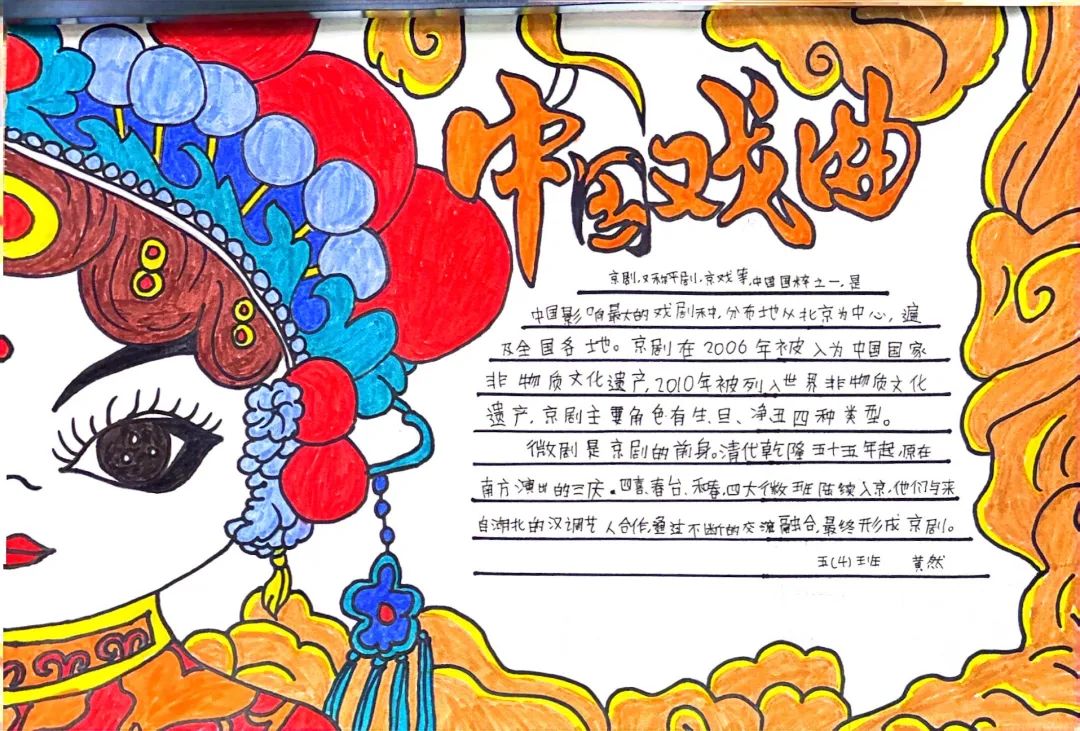 中国戏曲
京剧,又称平剧,京戏等,中国国粹之一,是
中国影响最大的戏剧种,分布地以北京为中心,遍
及全国各地。京剧在2006年被入为中国国家
非物质文化遗产,2010年被列入世界非物质文化
遗产,京剧主要角色有生、旦、净丑四种类型。
微剧是京剧的前身。清代乾隆五十五年起,原在
南方演出的三庆、四喜、春台、和春,四大微班陆续入京,他们与来
自湖北的汉调艺人合作,通过不断的交流融合,最终形成京剧。
五(4)班 黄然